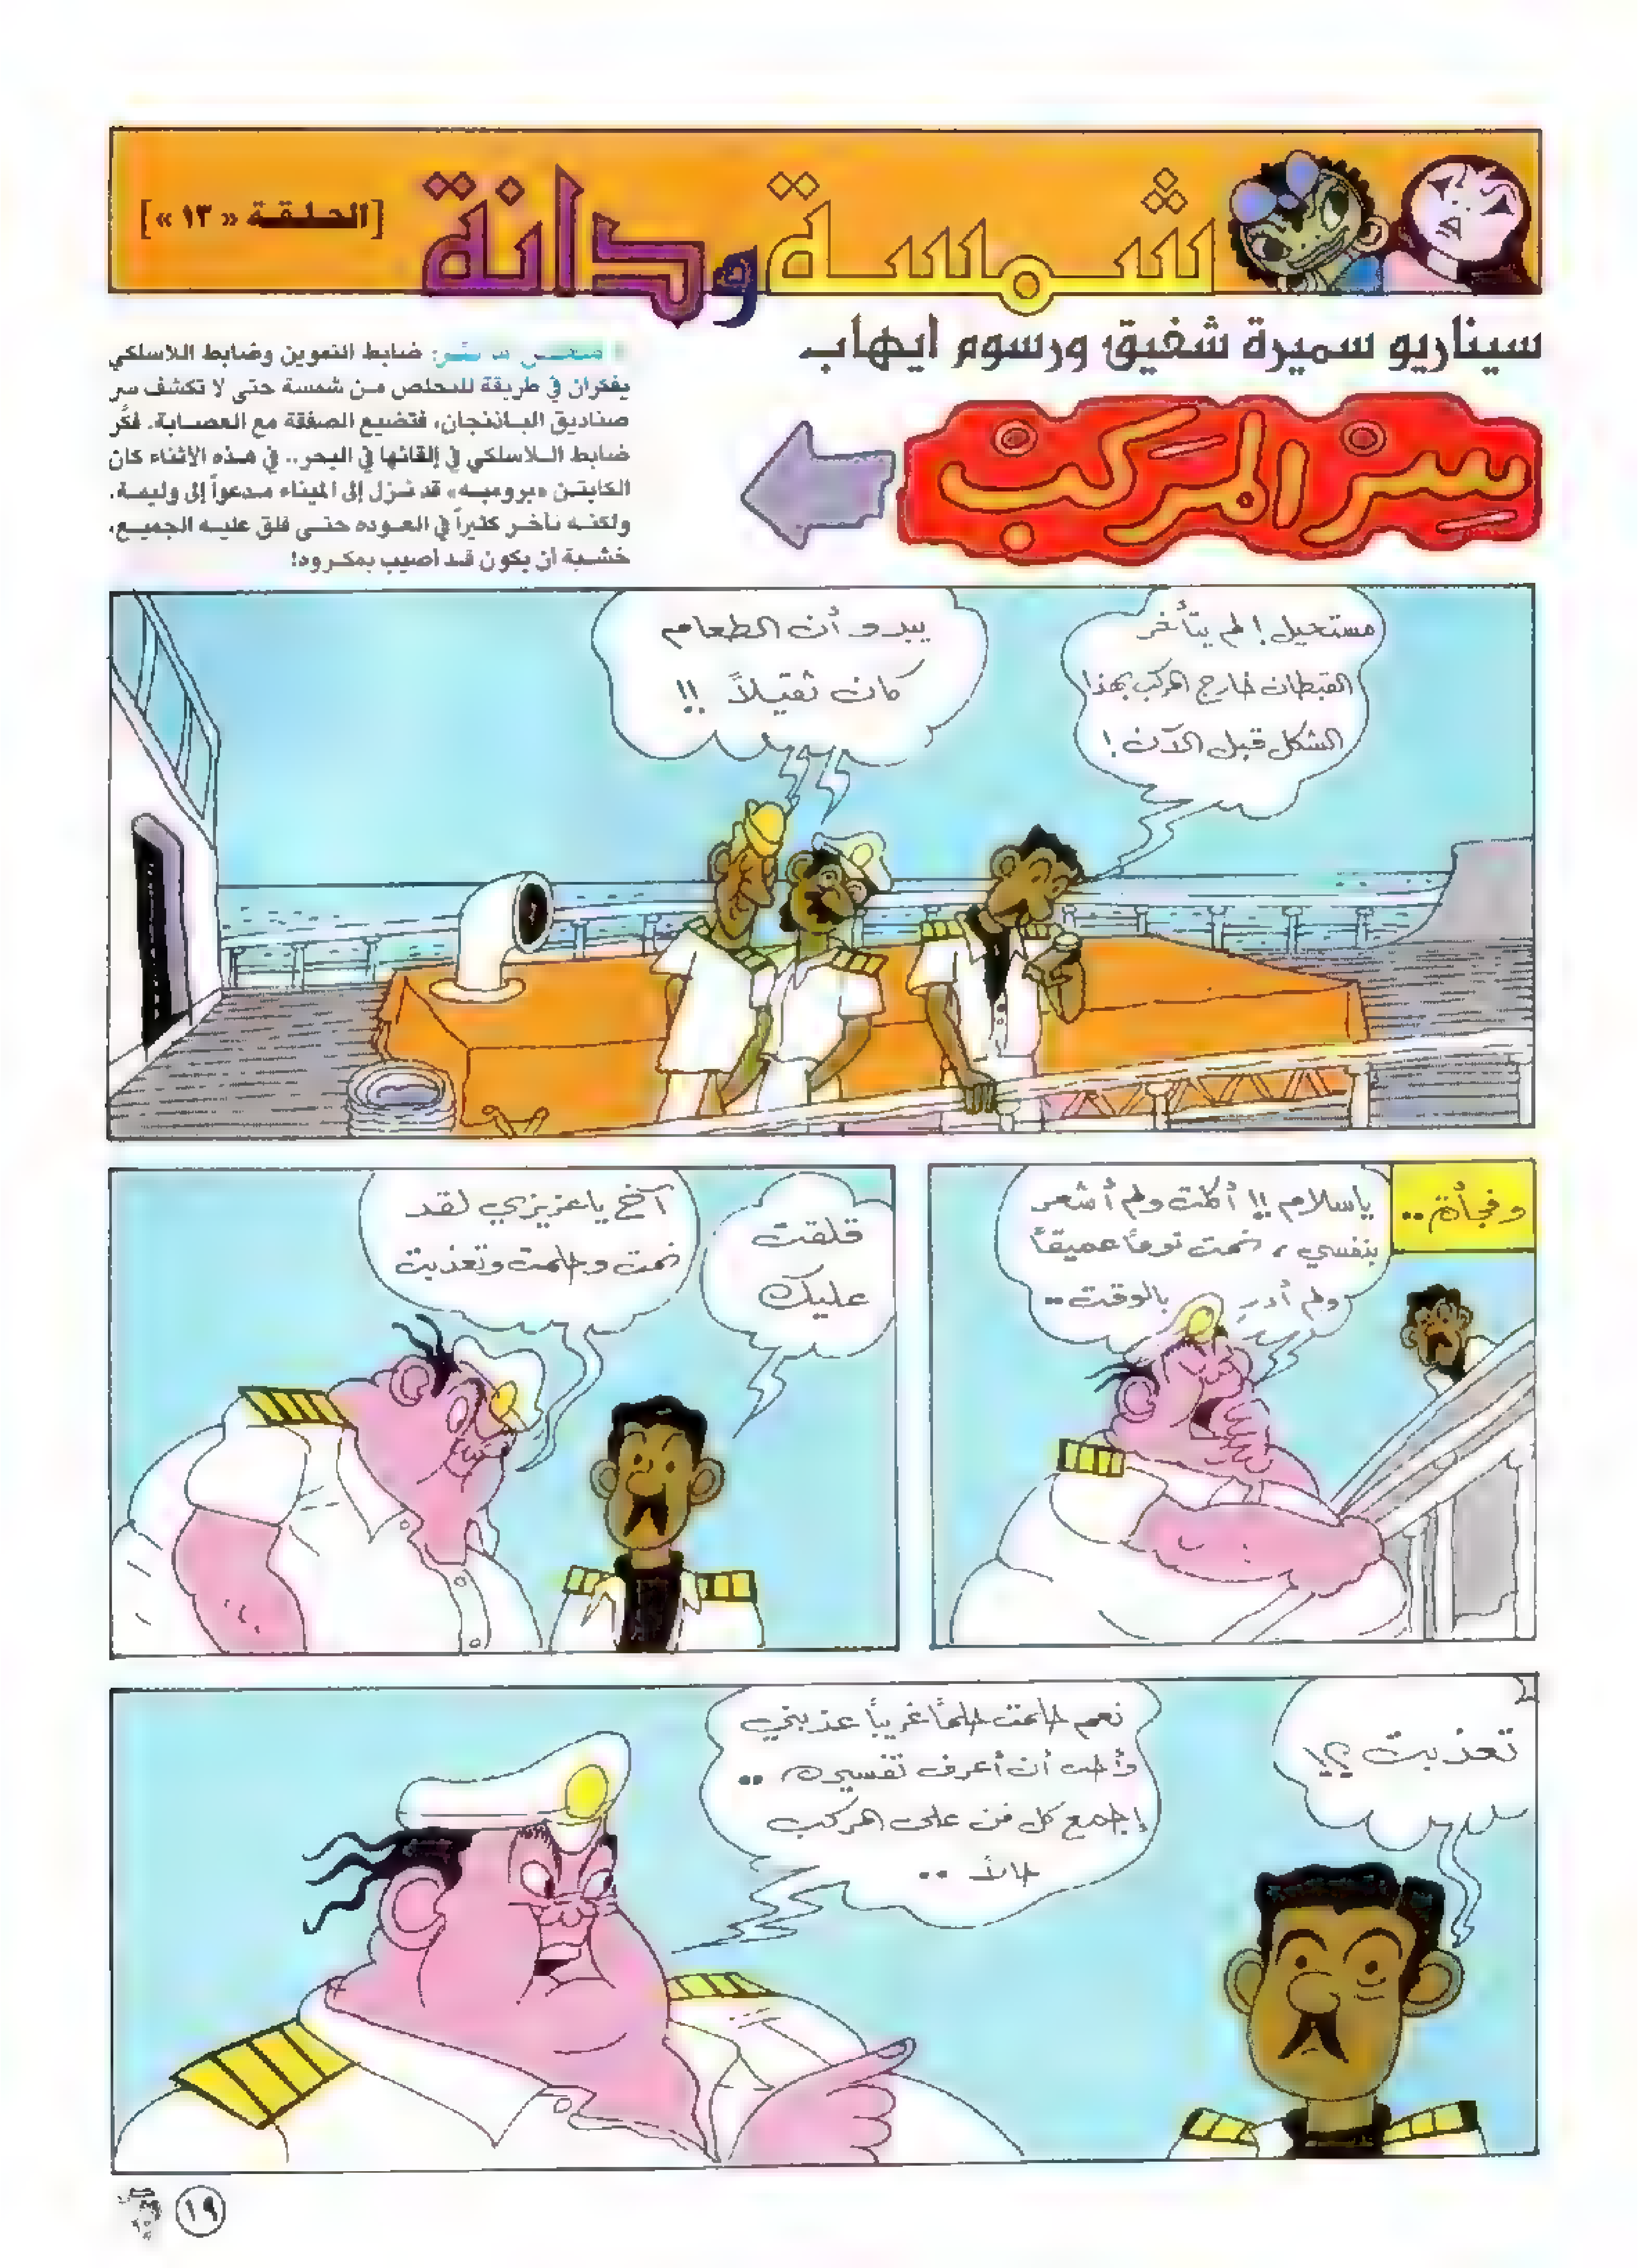 شمسة ودانة
[الحلقة « ١٣ »]
سيناريو سميرة شفيق ورسوم ايهاب
سر المركب
ضابط التموين وضابط اللاسلكي
يفكران في طريقة للتخلص من شمسة حتى لا تكشف سر
صناديق الباذنجان، فتضيع الصفقة مع العصابة. فكَّر
ضابط اللاسلكي في إلقائها في البحر.. في هذه الأثناء كان
الكابتن «برومبه» قد نزل إلى الميناء مدعواً إلى وليمة.
ولكنه تأخر كثيراً في العوده حتى قلق عليه الجميع،
خشية أن يكون قد أصيب بمكروه!
مستحيل! لم يتأخر
القبطان خارج المركب بهذا
الشكل قبل الآن!
يبدو أن الطعام
كان ثقيلاً !!
وفجأة..
ياسلام !! أكلت ولم أشعر
بنفسي، نمت نوماً عميقاً
ولم أدر بالوقت..
قلقت
عليك
آخ ياعزيزي لقد
نمت وحلمت وتعذبت
تعذبت ؟!
نعم حلمت حلماً غريباً عذبني
وأحب أن أعرف تفسيره ..
إجمع كل من على المركب
حالاً ..
١٩